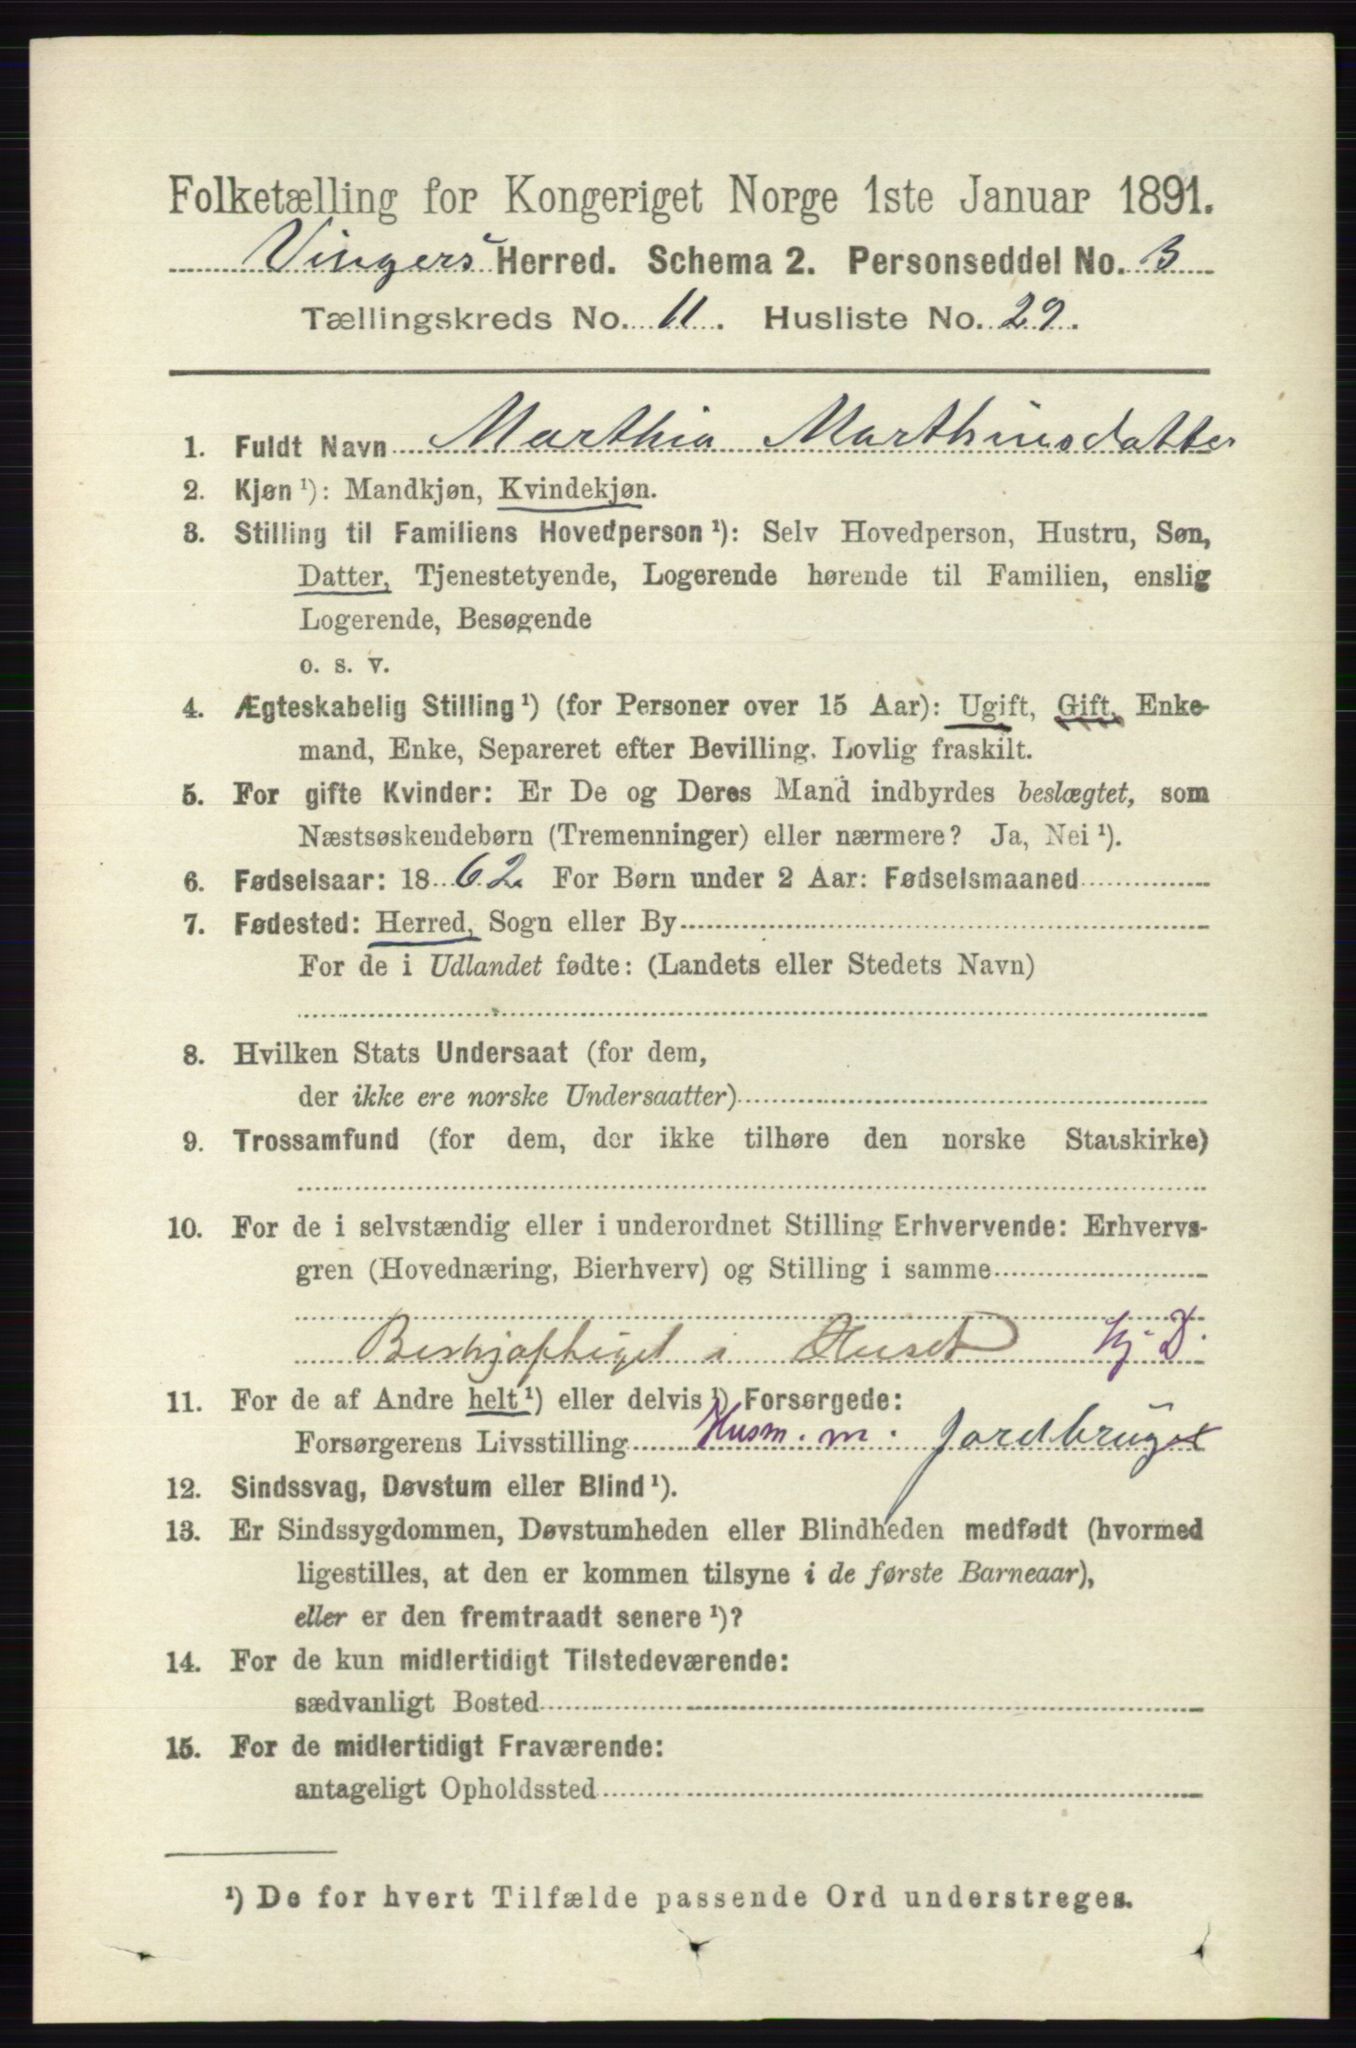 Folketælling for Kongeriget Norge 1ste Januar 1891.
Vingers Herred. Schema 2. Personseddel No. 3
Tællingskreds No. 11. Husliste No. 29.
1. Fuldt Navn Marthia Marthinsdatter
2. Kjøn ¹): Mandkjøn, Kvindekjøn.
3. Stilling til Familiens Hovedperson ¹): Selv Hovedperson, Hustru, Søn,
Datter, Tjenestetyende, Logerende hørende til Familien, enslig
Logerende, Besøgende
o. s. v.
4. Ægteskabelig Stilling ¹) (for Personer over 15 Aar): Ugift, Gift, Enke-
mand, Enke, Separeret efter Bevilling. Lovlig fraskilt.
5. For gifte Kvinder: Er De og Deres Mand indbyrdes beslægtet, som
Næstsøskendebørn (Tremenninger) eller nærmere? Ja, Nei ¹).
6. Fødselsaar: 1862. For Børn under 2 Aar: Fødselsmaaned
7. Fødested: Herred, Sogn eller By
For de i Udlandet fødte: (Landets eller Stedets Navn)
8. Hvilken Stats Undersaat (for dem,
der ikke ere norske Undersaatter)
9. Trossamfund (for dem, der ikke tilhøre den norske Statskirke)
10. For de i selvstændig eller i underordnet Stilling Erhvervende: Erhvervs-
gren (Hovednæring, Bierhverv) og Stilling i samme
Beskjæftiget i Huset hj. D.
11. For de af Andre helt ¹) eller delvis ¹) Forsørgede:
Forsørgerens Livsstilling Husm. m. Jordbruget
12. Sindssvag, Døvstum eller Blind ¹).
13. Er Sindssygdommen, Døvstumheden eller Blindheden medfødt (hvormed
ligestilles, at den er kommen tilsyne i de første Barneaar),
eller er den fremtraadt senere ¹)?
14. For de kun midlertidigt Tilstedeværende:
sædvanligt Bosted
15. For de midlertidigt Fraværende:
antageligt Opholdssted
¹) De for hvert Tilfælde passende Ord understreges.